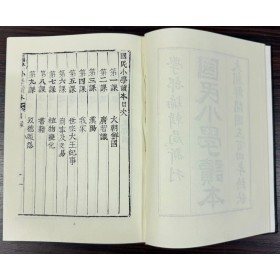 國民小學讀本目次
第一課 大朝鮮國
第二課 廣智識
第三課 漢陽
第四課 我家
第五課 世宗大王紀事
第六課 商事及交易
第七課 植物變化
第八課 書籍
第九課 以德報怨
國民小學讀本
學部編輯局新刊